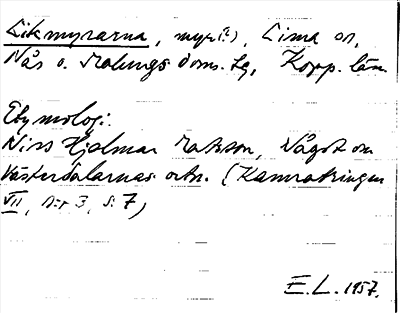 Likmyrarna, myr(?), Lima sn,
Nås o. Malungs doms. hg, Kopp. län
Etymologi:
Nirs Hjalmar Matsson, Något om
Västerdalarnas ortn. (Kamratringen
VII, n:r 3, s. 7)
E. L. 1957.